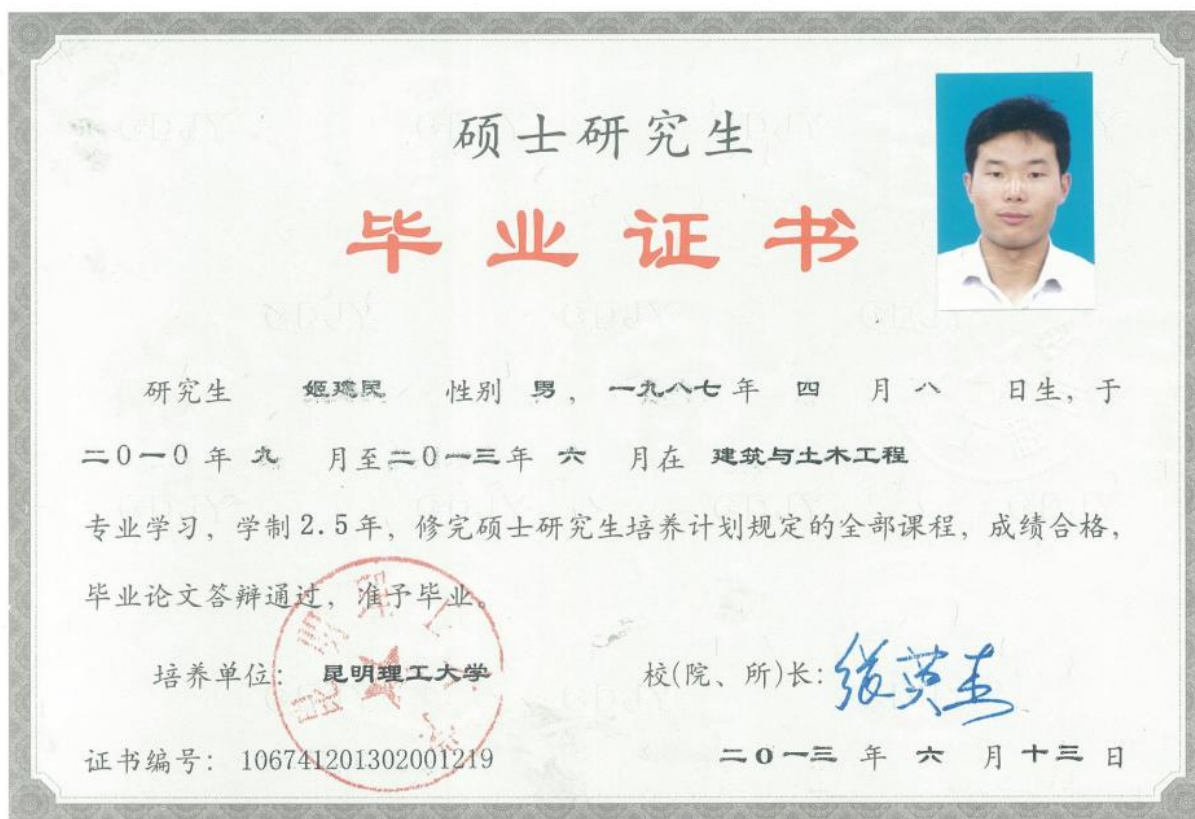 硕士研究生
毕业证书
研究生 姬建民 性别 男，一九八七年 四 月 八 日生，于
二0一0年 九 月至二0一三年 六 月在 建筑与土木工程
专业学习，学制2.5年，修完硕士研究生培养计划规定的全部课程，成绩合格，
毕业论文答辩通过，准予毕业。
培养单位：昆明理工大学 校(院、所)长：张英杰
证书编号：106741201302001219 二0一三 年 六 月 十三 日
昆明理工大学